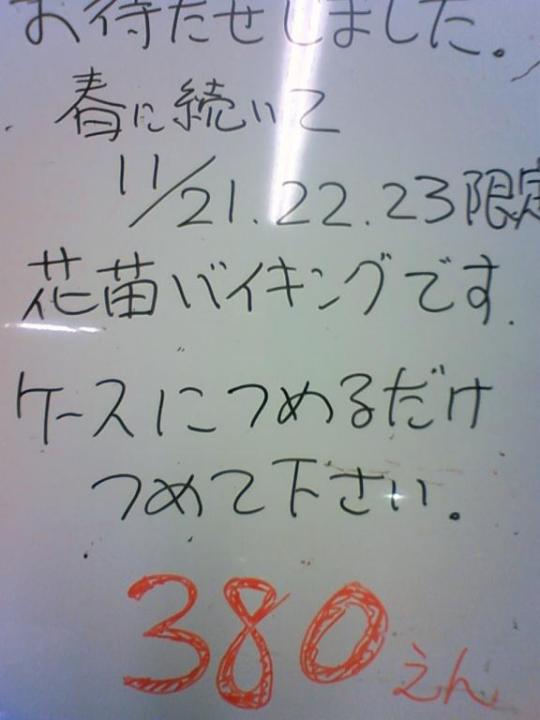 お待たせしました。
春に続いて
11/21.22.23限定
花苗バイキングです.
ケースにつめるだけ
つめて下さい。
380えん